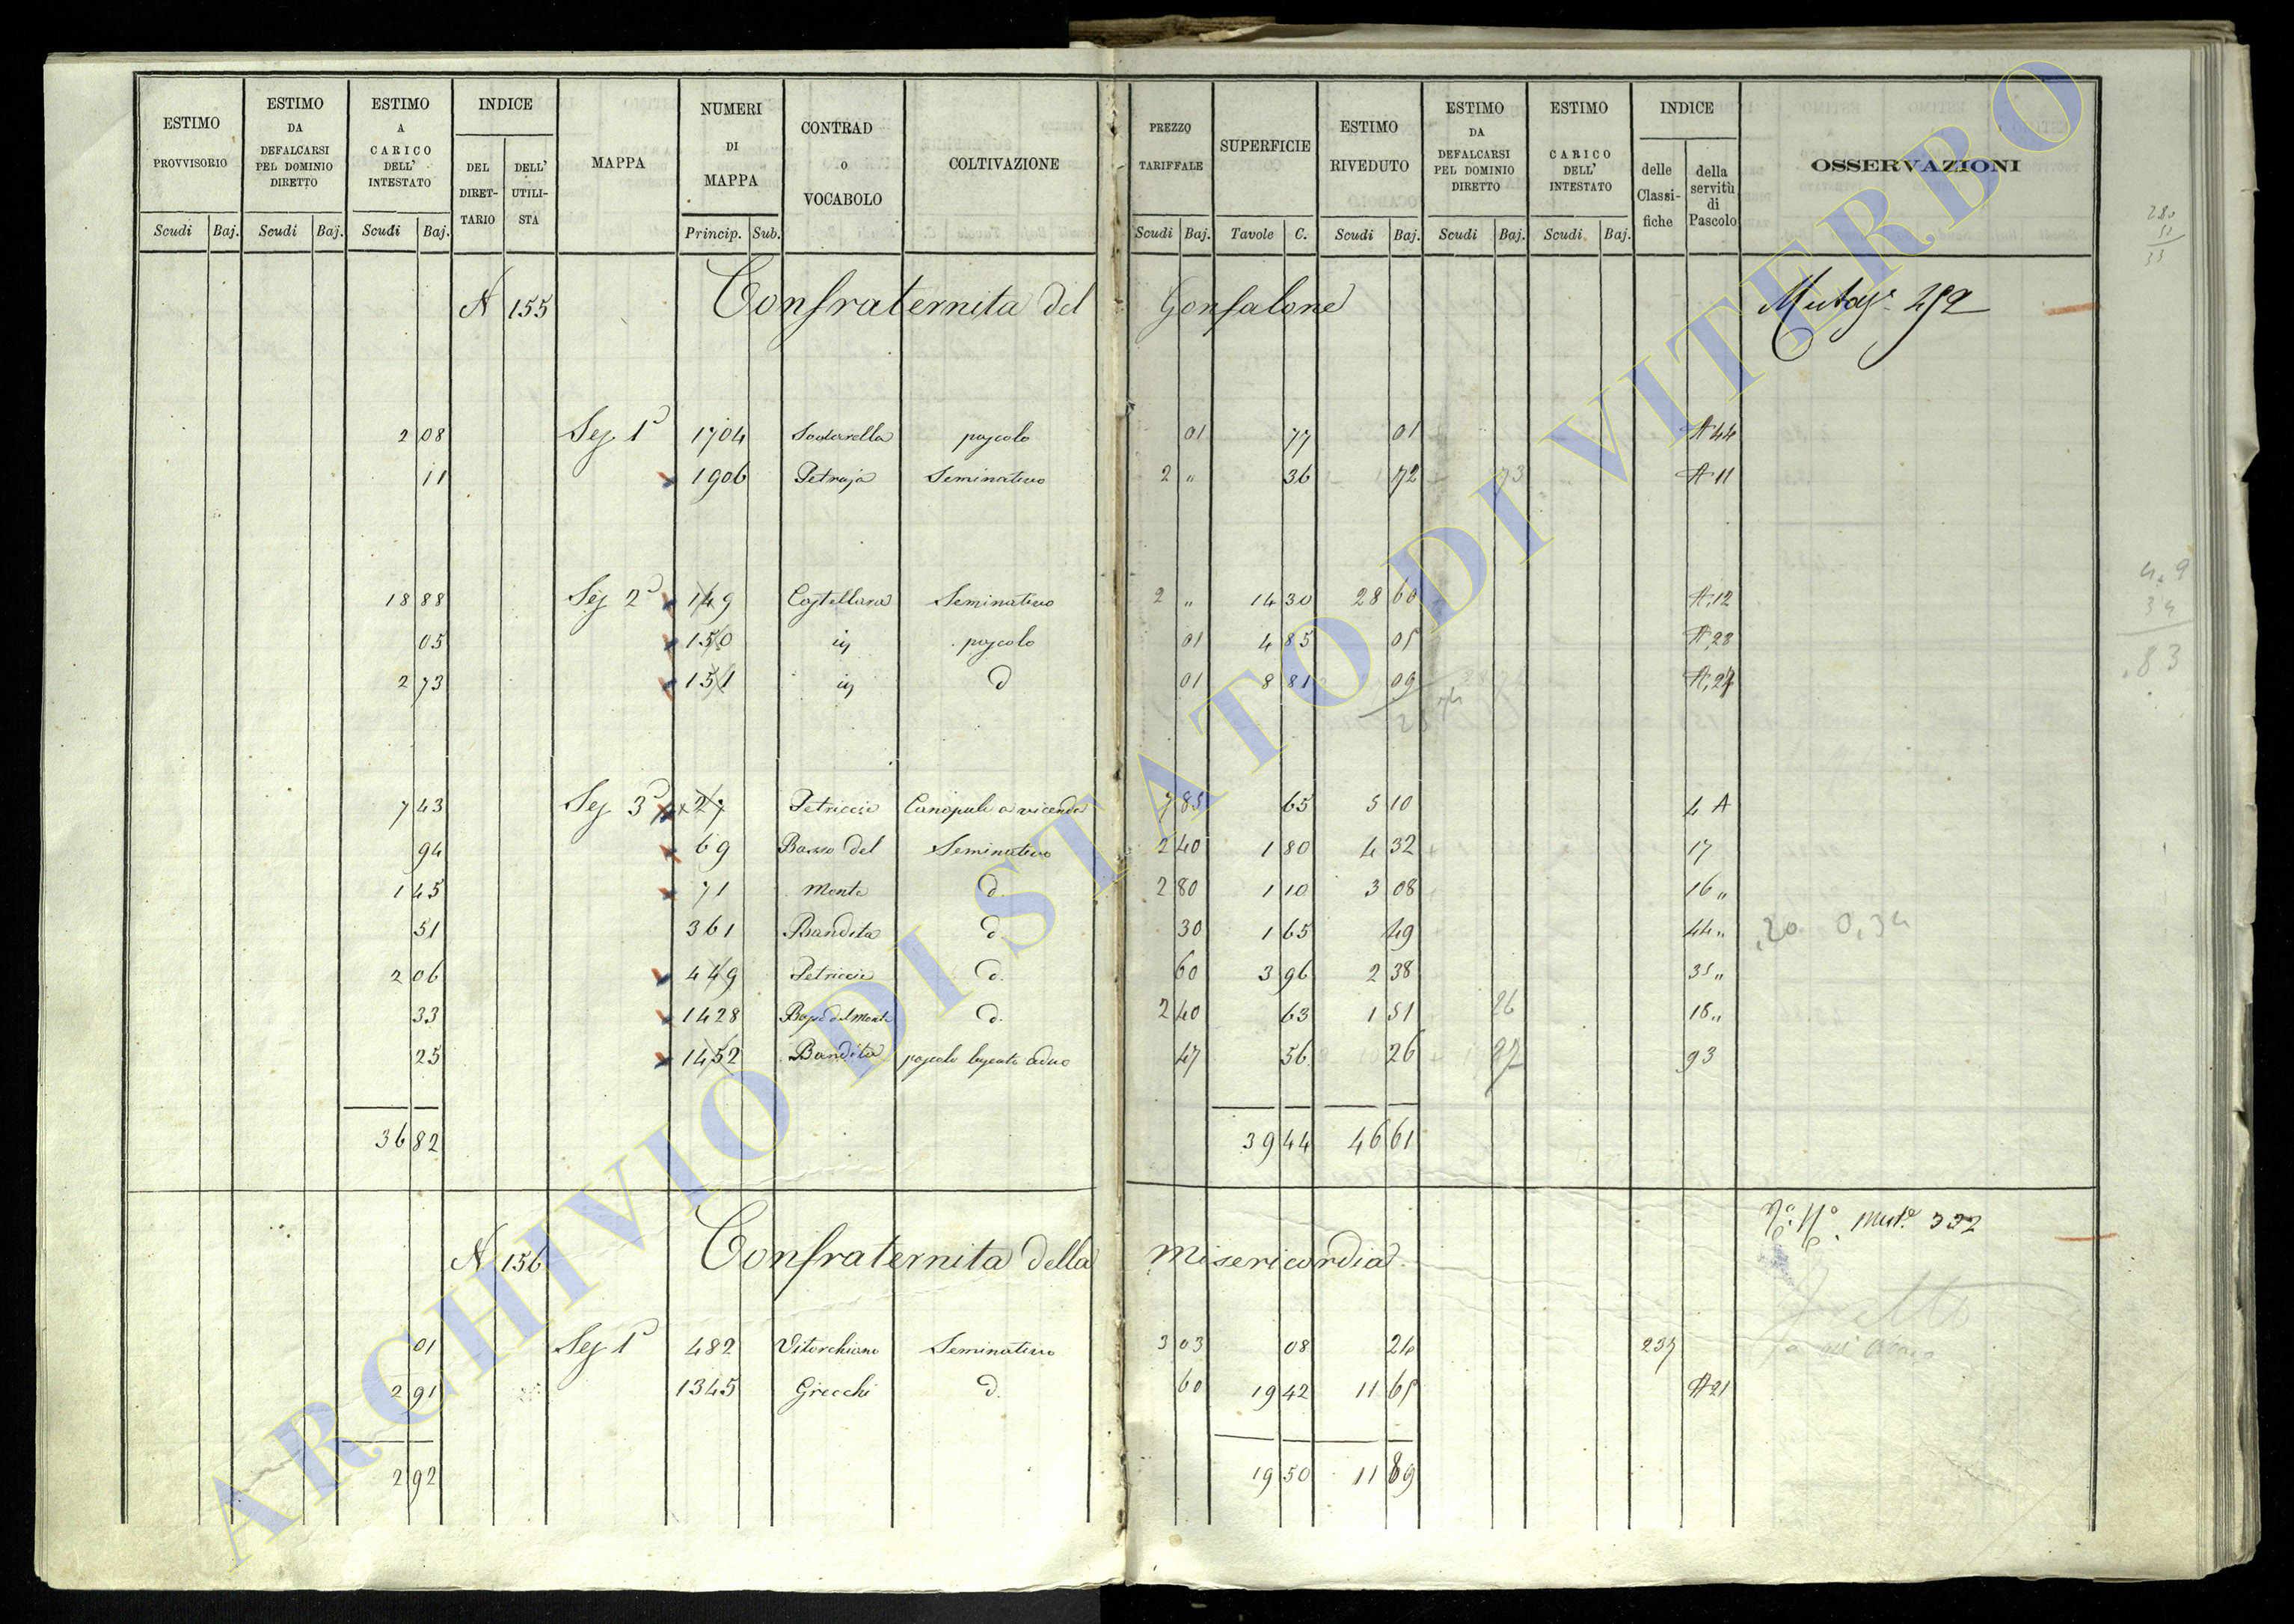 ESTIMO PROVVISORIO | ESTIMO DA DEFALCARSI PEL DOMINIO DIRETTO | ESTIMO A CARICO DELL' INTESTATO | INDICE | MAPPA | NUMERI DI MAPPA | CONTRAD o VOCABOLO | COLTIVAZIONE | PREZZO TARIFFALE | SUPERFICIE | ESTIMO RIVEDUTO | ESTIMO DA DEFALCARSI PEL DOMINIO DIRETTO | ESTIMO A CARICO DELL' INTESTATO | INDICE | OSSERVAZIONI
DEL DIRETTARIO | DELL' UTILISTA | delle Classifiche | della servitù di Pascolo
Scudi | Baj. | Scudi | Baj. | Scudi | Baj. | Princip. | Sub. | Scudi | Baj. | Tavole | C. | Scudi | Baj. | Scudi | Baj. | Scudi | Baj.
280
33
N 155 Confraternita del Gonfalone
2 08 Sez 1ª 1704 pascolo 01 77 01 A 44
11 1906 Petraja Seminativo 2 " 36 72 73 A 11
18 88 Sez 2ª 149 Seminativo 2 " 14 30 28 60 A 12
05 150 pascolo 01 4 85 05 A 28
2 73 151 d 01 8 81 09 A 27
28 74
34
83
7 43 Sez 3ª 27 Petriccie Canapule a vicenda 7 85 65 5 10 4 A
94 69 Basso del Seminativo 2 40 1 80 4 32 17
1 45 71 Monte d. 2 80 1 10 3 08 16 "
51 361 Bandita d 30 1 65 49 44 " 20 0,34
2 06 449 Petriccie d. 60 3 96 2 38 35 "
33 1428 Basso del Monte d. 2 40 63 1 51 26 18 "
25 1452 Bandita pascolo boscato ceduo 47 56 26 27 93
36 82 39 44 46 61
Mut.e 332
N 156 Confraternita della Misericordia
01 Sez 1ª 482 Vitorchiano Seminativo 3 03 08 24 237
2 91 1345 Grecchi d. 60 19 42 11 65 A 21
2 92 19 50 11 89
ARCHIVIO DI STATO DI VITERBO